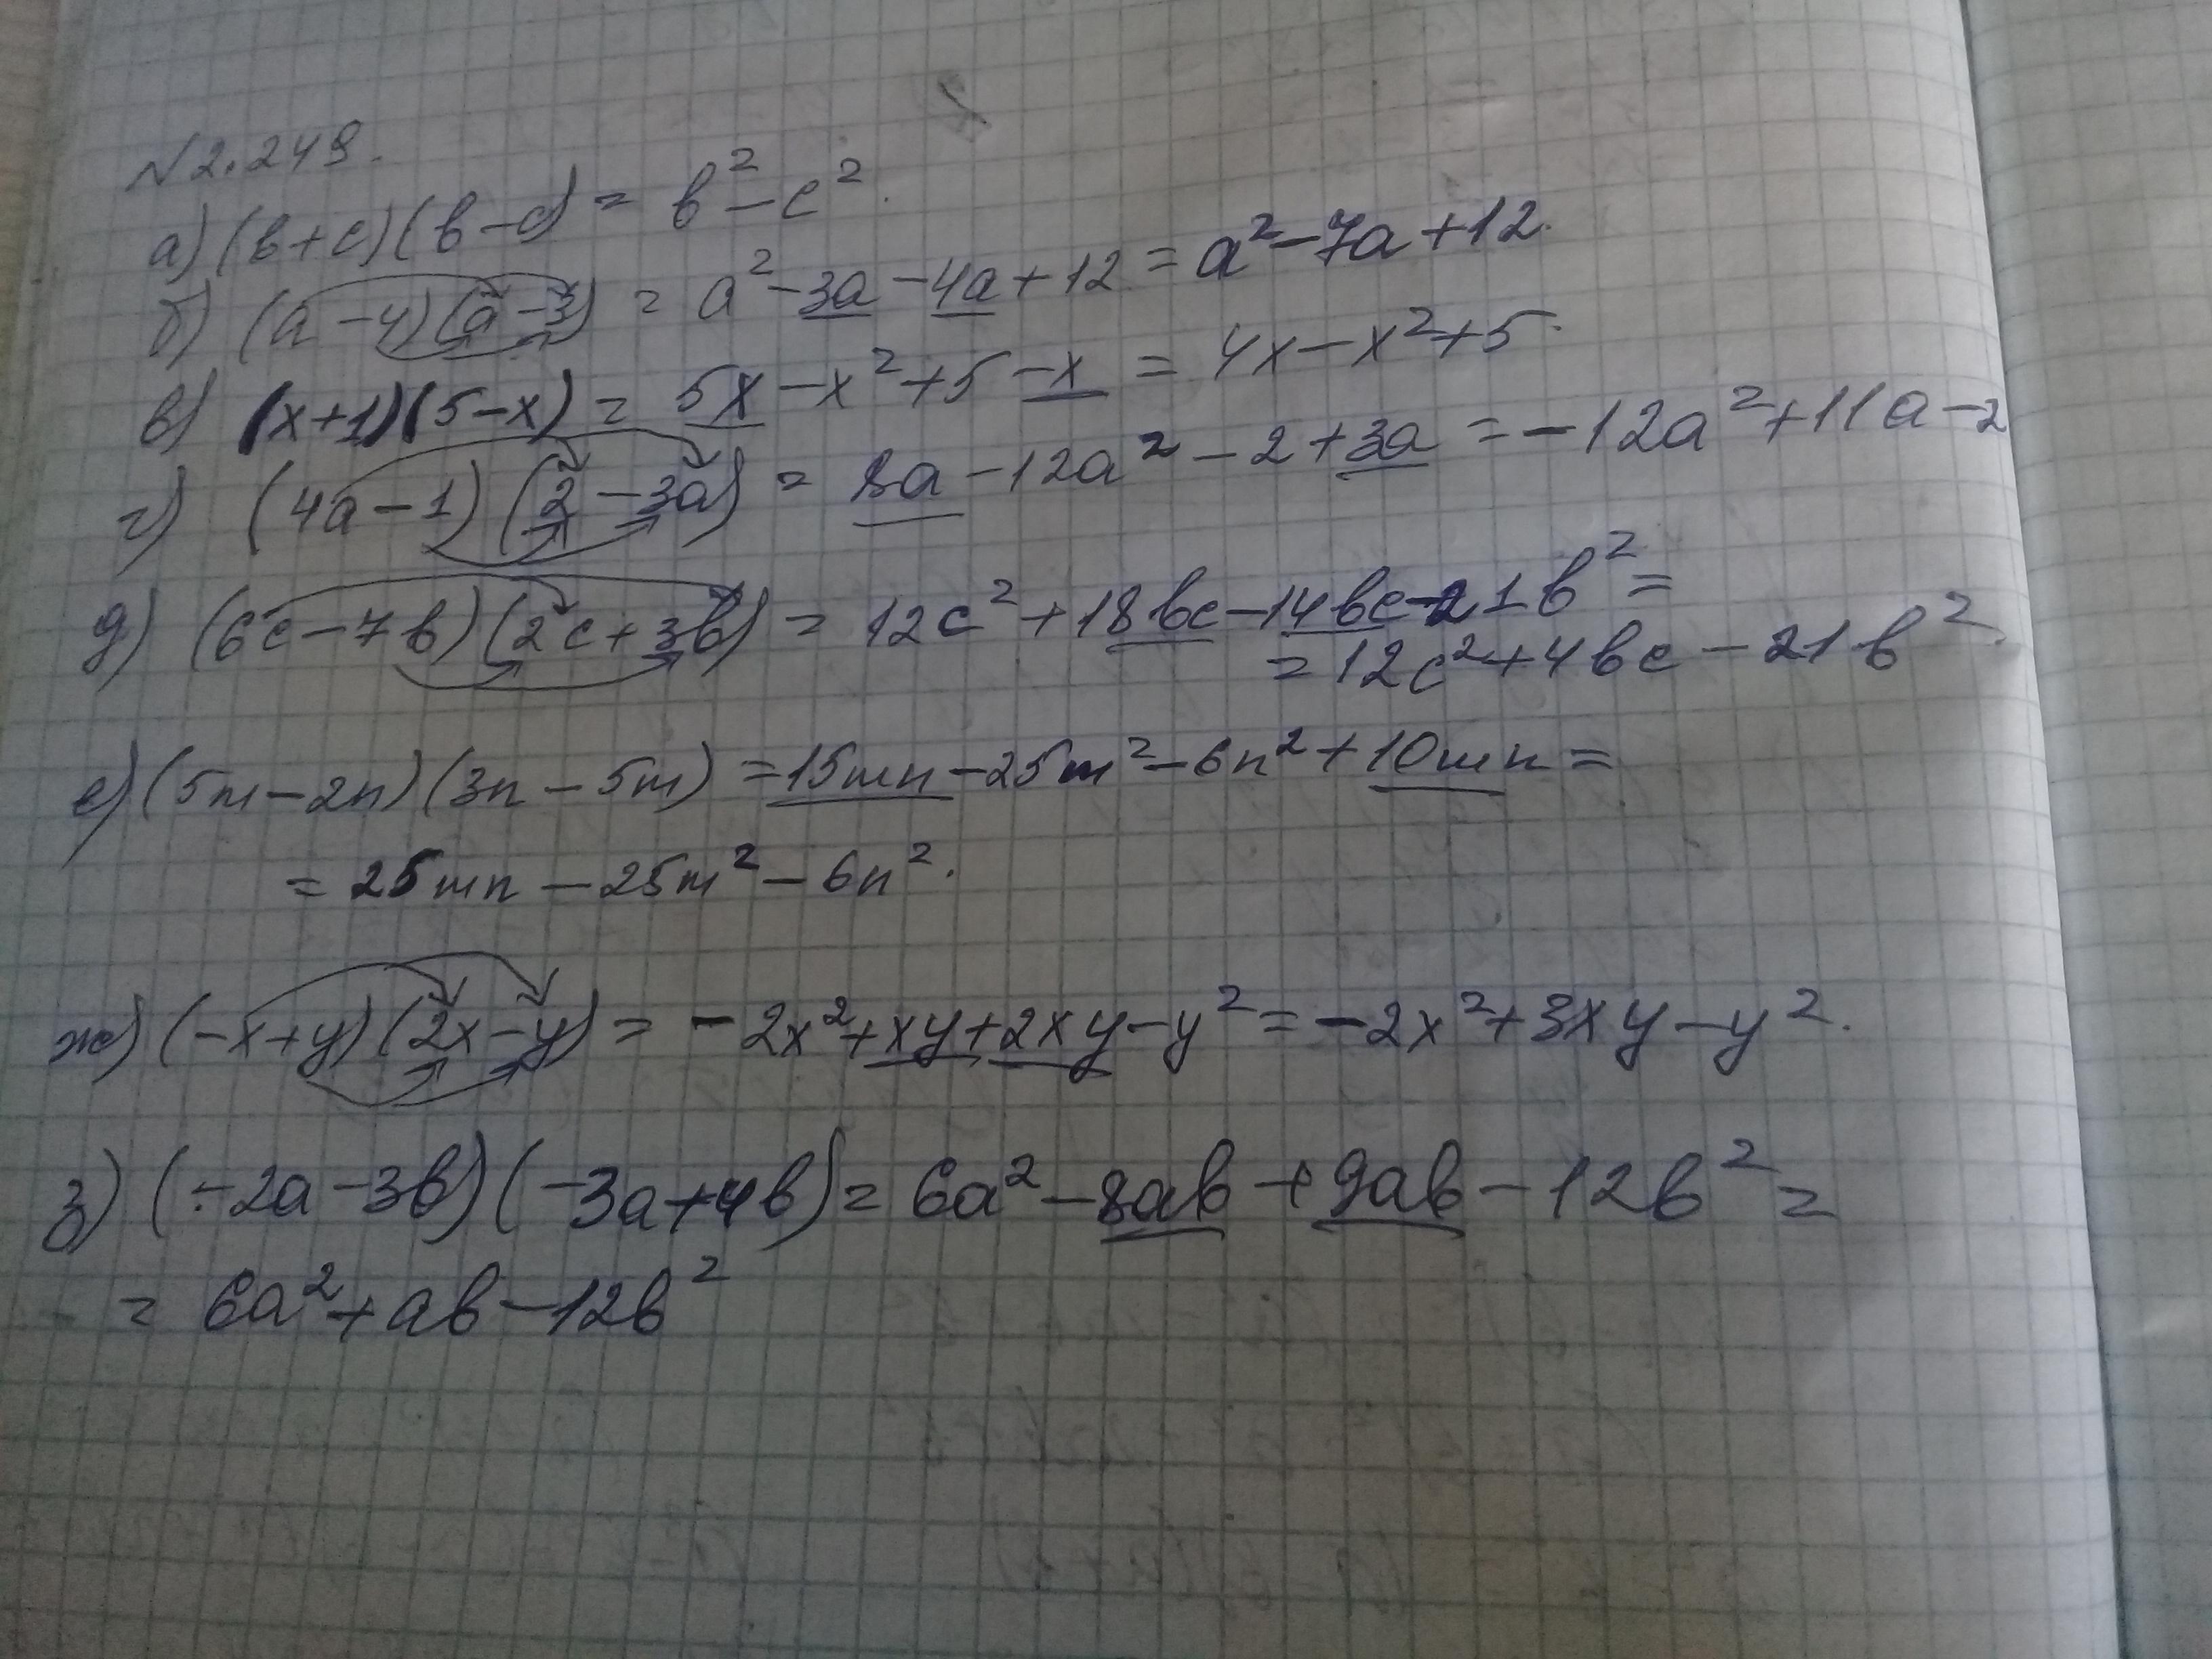 №2.249.
а) (b+c)(b-c) = b²-c².
б) (a-4)(a-3) = a²-3a-4a+12 = a²-7a+12.
в) (x+1)(5-x) = 5x-x²+5-x = 4x-x²+5.
г) (4a-1)(2-3a) = 8a-12a²-2+3a = -12a²+11a-2
д) (6c-7b)(2c+3b) = 12c²+18bc-14bc-21b² =
= 12c²+4bc-21b².
е) (5m-2n)(3n-5m) = 15mn-25m²-6n²+10mn =
= 25mn-25m²-6n².
ж) (-x+y)(2x-y) = -2x²+xy+2xy-y² = -2x²+3xy-y².
з) (-2a-3b)(-3a+4b) = 6a²-8ab+9ab-12b² =
= 6a²+ab-12b²